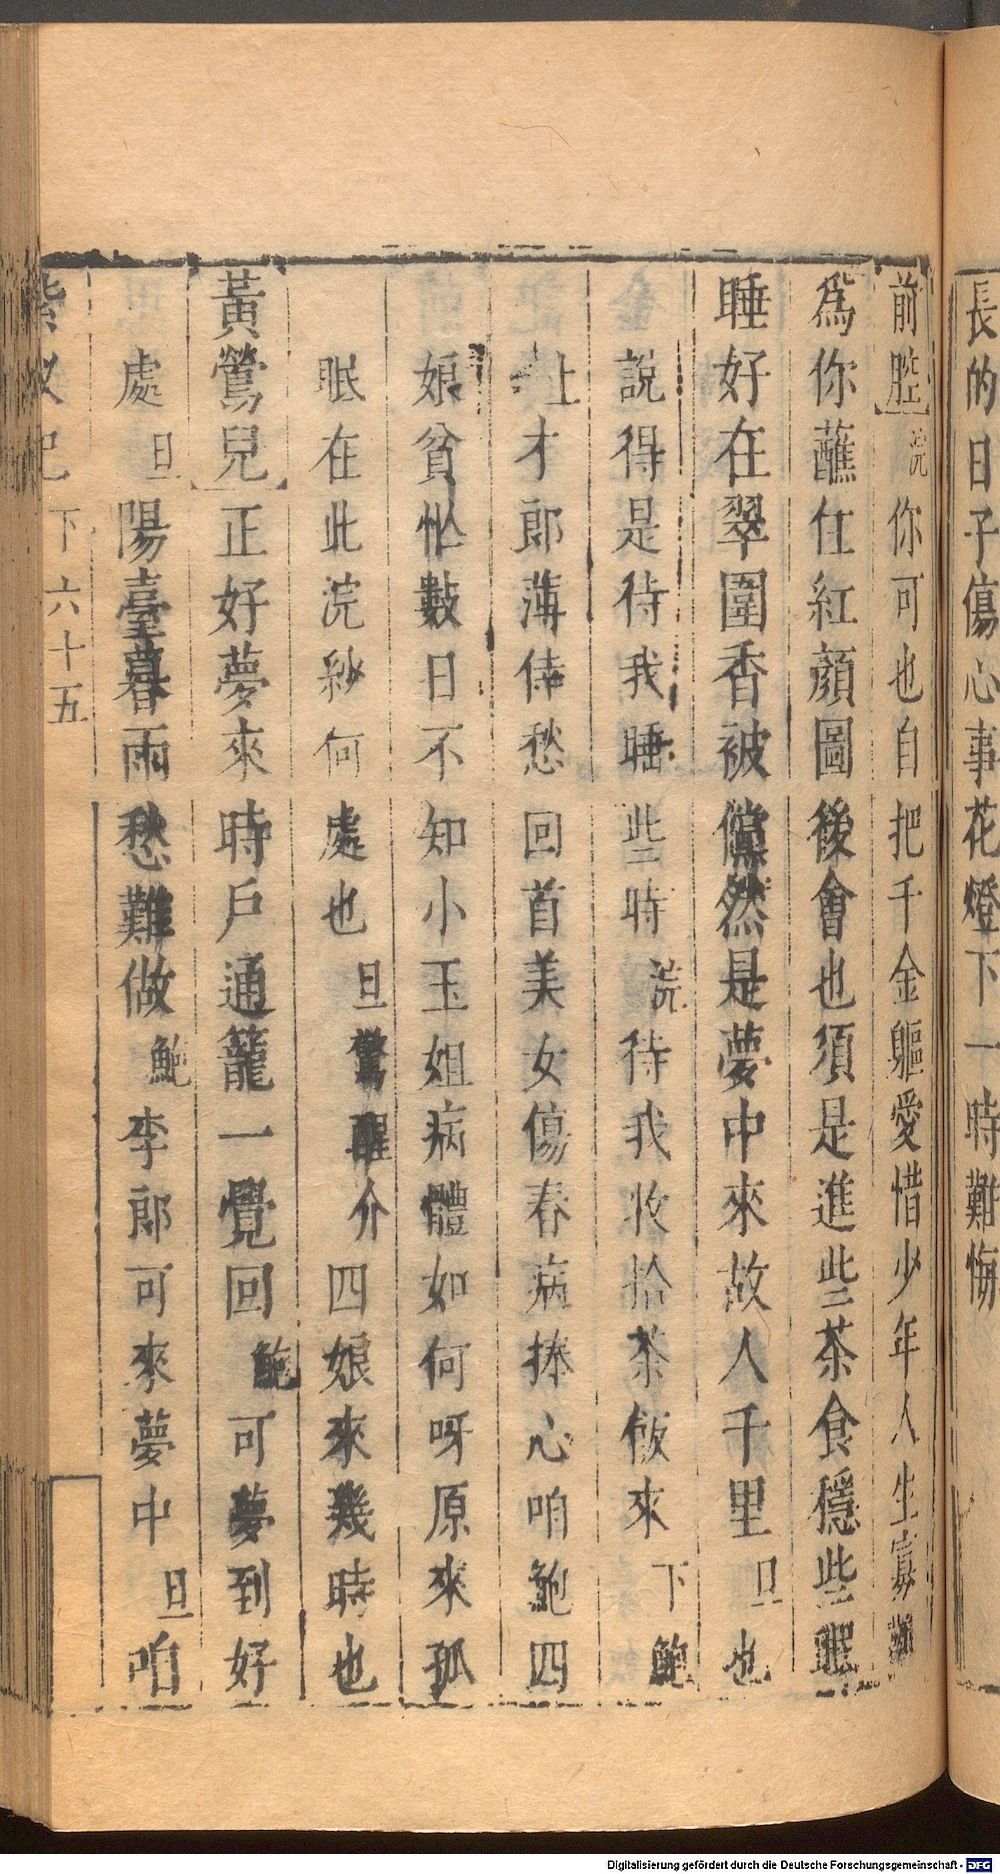 長的日子傷心事花燈下一時難悔
前腔 浣 你可也自把千金軀愛惜少年人生寡
爲你蘸住紅顏圖後會也須是進些茶食穩些眠
睡好在翠圍香被儻然是夢中來故人千里 旦 也
說得是待我睡些時 浣 待我收拾茶飯來 下 鮑
上 才郎薄倖愁回首美女傷春病捧心咱鮑四
娘貧忙數日不知小玉姐病體如何呀原來孤
眠在此浣紗何處也 旦驚醒介 四娘來幾時也
黃鶯兒 正好夢來時戶通籠一覺回 鮑 可夢到好
處 旦 陽臺暮雨愁難做 鮑 李郎可來夢中 旦 咱
紫釵記 下 六十五
Digitalisierung gefördert durch die Deutsche Forschungsgemeinschaft - DFG